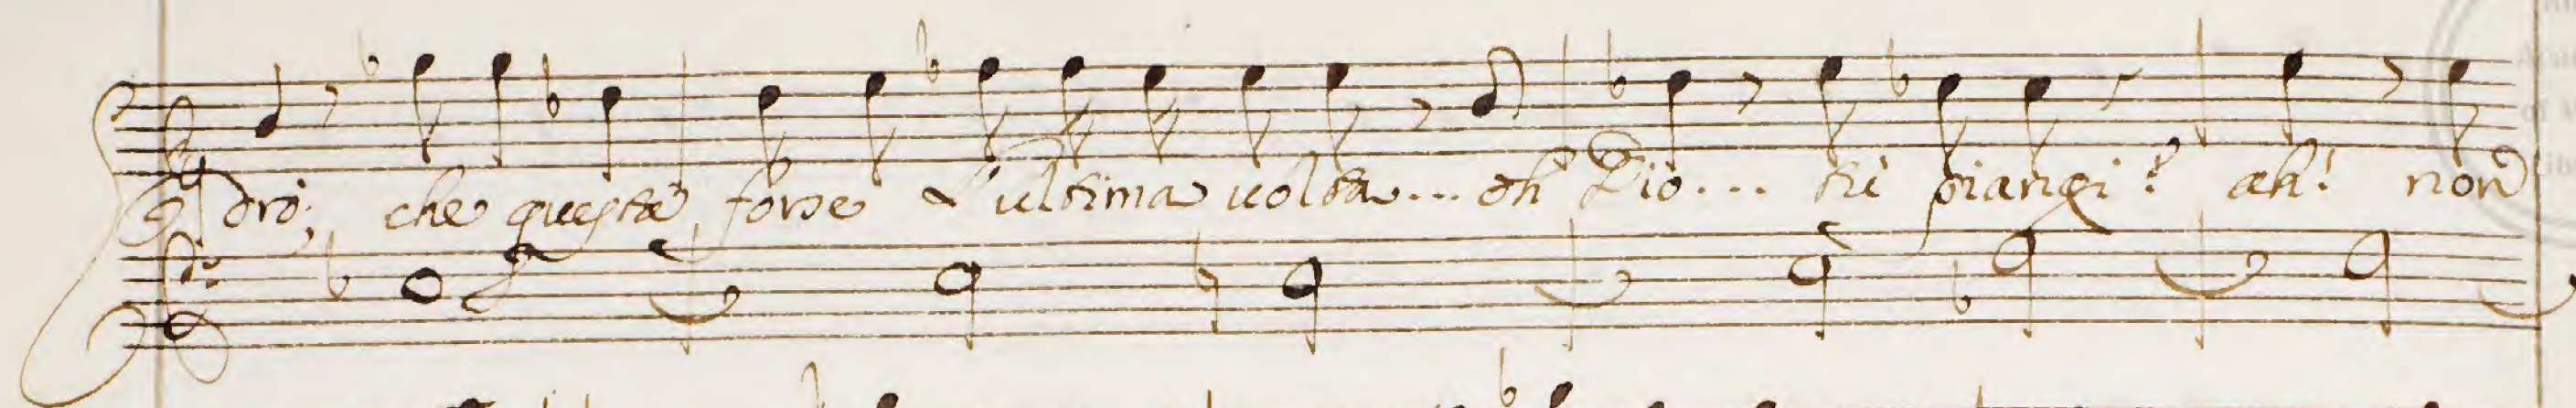 drò; che questa forse L'ultima uolta... oh Dio... tù piangi? ah! non